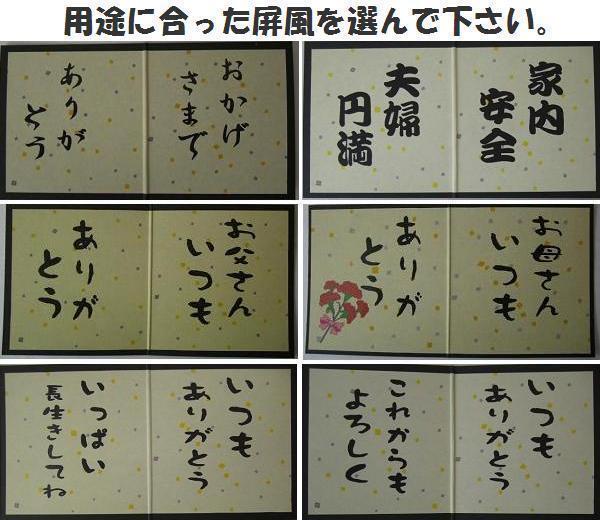 用途に合った屏風を選んで下さい。
おかげ
さまで
ありが
とう
家内
安全
夫婦
円満
お父さん
いつも
ありが
とう
お母さん
いつも
ありが
とう
いつも
ありがとう
いっぱい
長生きしてね
いつも
ありがとう
これからも
よろしく